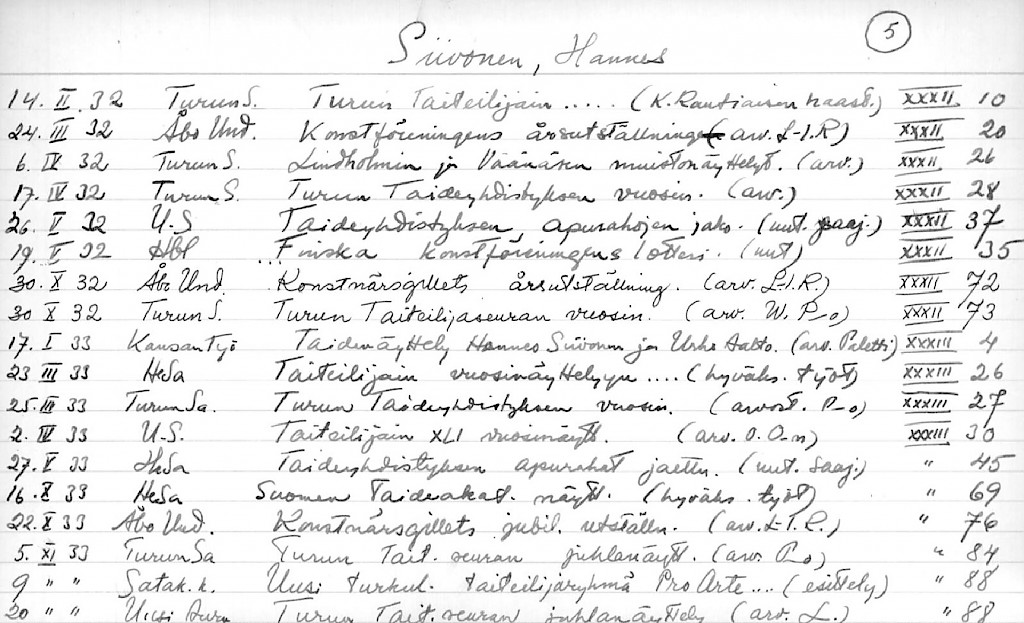 5
Siivonen, Hannes
14. II. 32 Turun S. Turun Taiteilijain ..... (K. Rautiaisen haast.) XXXII 10
24. III 32 Åbo Und. Konstföreningens årsutställning (arv. L-I.R) XXXII 20
6. IV 32 Turun S. Lindholmin ja Väänäsen muistonäyttelyt. (arv.) XXXII 26
17. IV 32 Turun S. Turun Taideyhdistyksen vuosin. (arv.) XXXII 28
26. V 32 U.S Taideyhdistyksen, apurahojen jako. (uut. saaj.) XXXII 37
19. V 32 Hbl ... Finska Konstföreningens lotteri. (uut) XXXII 35
30. X 32 Åbo Und. Konstnärsgillets årsutställning. (arv. L-I.R.) XXXII 72
30 X 32 Turun S. Turun Taiteilijaseuran vuosin. (arv. W. P_o) XXXII 73
17. I 33 Kansan Työ Taidenäyttely Hannes Siivonen ja Urho Aalto. (arv. Paletti) XXXIII 4
23 III 33 HeSa Taiteilijain vuosinäyttelyyn .... (hyväks. työt) XXXIII 26
25. III 33 Turun Sa. Turun Taideyhdistyksen vuosin. (arvost. P_o) XXXIII 27
2. IV 33 U.S. Taiteilijain XLI vuosinäytt. (arv. O. O-n) XXXIII 30
27. V 33 HeSa Taideyhdistyksen apurahat jaettu. (uut. saaj.) " 45
16. X 33 HeSa Suomen Taideakat. näytt. (hyväks. työt) " 69
22. X 33 Åbo Und. Konstnärsgillets jubil. utställn. (arv. L-I.R.) " 76
5. XI 33 Turun Sa Turun Tait. seuran juhlanäytt. (arv. P_o) " 84
9 " " Satak. k. Uusi turkul. taiteilijaryhmä Pro Arte.... (esittely) " 88
20 " " Uusi Aura Turun Tait. seuran juhlanäyttely (arv. L.) " 88